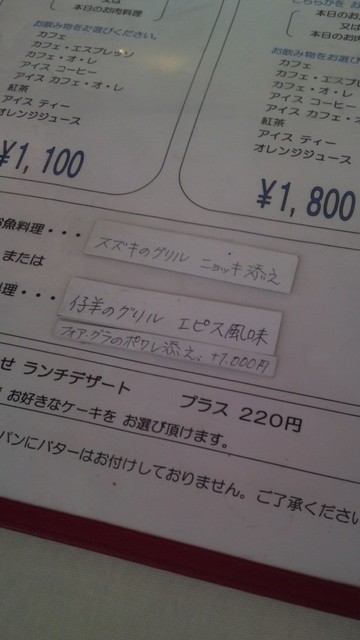 又は
本日のお肉料理
お飲み物をお選びください。
カフェ
カフェ・エスプレッソ
カフェ・オ・レ
アイス コーヒー
アイス カフェ・オ・レ
紅茶
アイス ティー
オレンジジュース
¥1,100
本日のお
又は
本日のお肉
お飲み物をお選び
カフェ
カフェ・エスプレ
カフェ・オ・レ
アイス コーヒー
アイス カフェ・オ
紅茶
アイス ティー
オレンジジュース
¥1,800
お魚料理・・・ スズキのグリル ニョッキ添え
または
料理・・・ 仔羊のグリル エピス風味
フォアグラのポワレ添え、+1,000円
せ ランチデザート プラス 220円
お好きなケーキを お選び頂けます。
パンにバターはお付けしておりません。ご了承ください